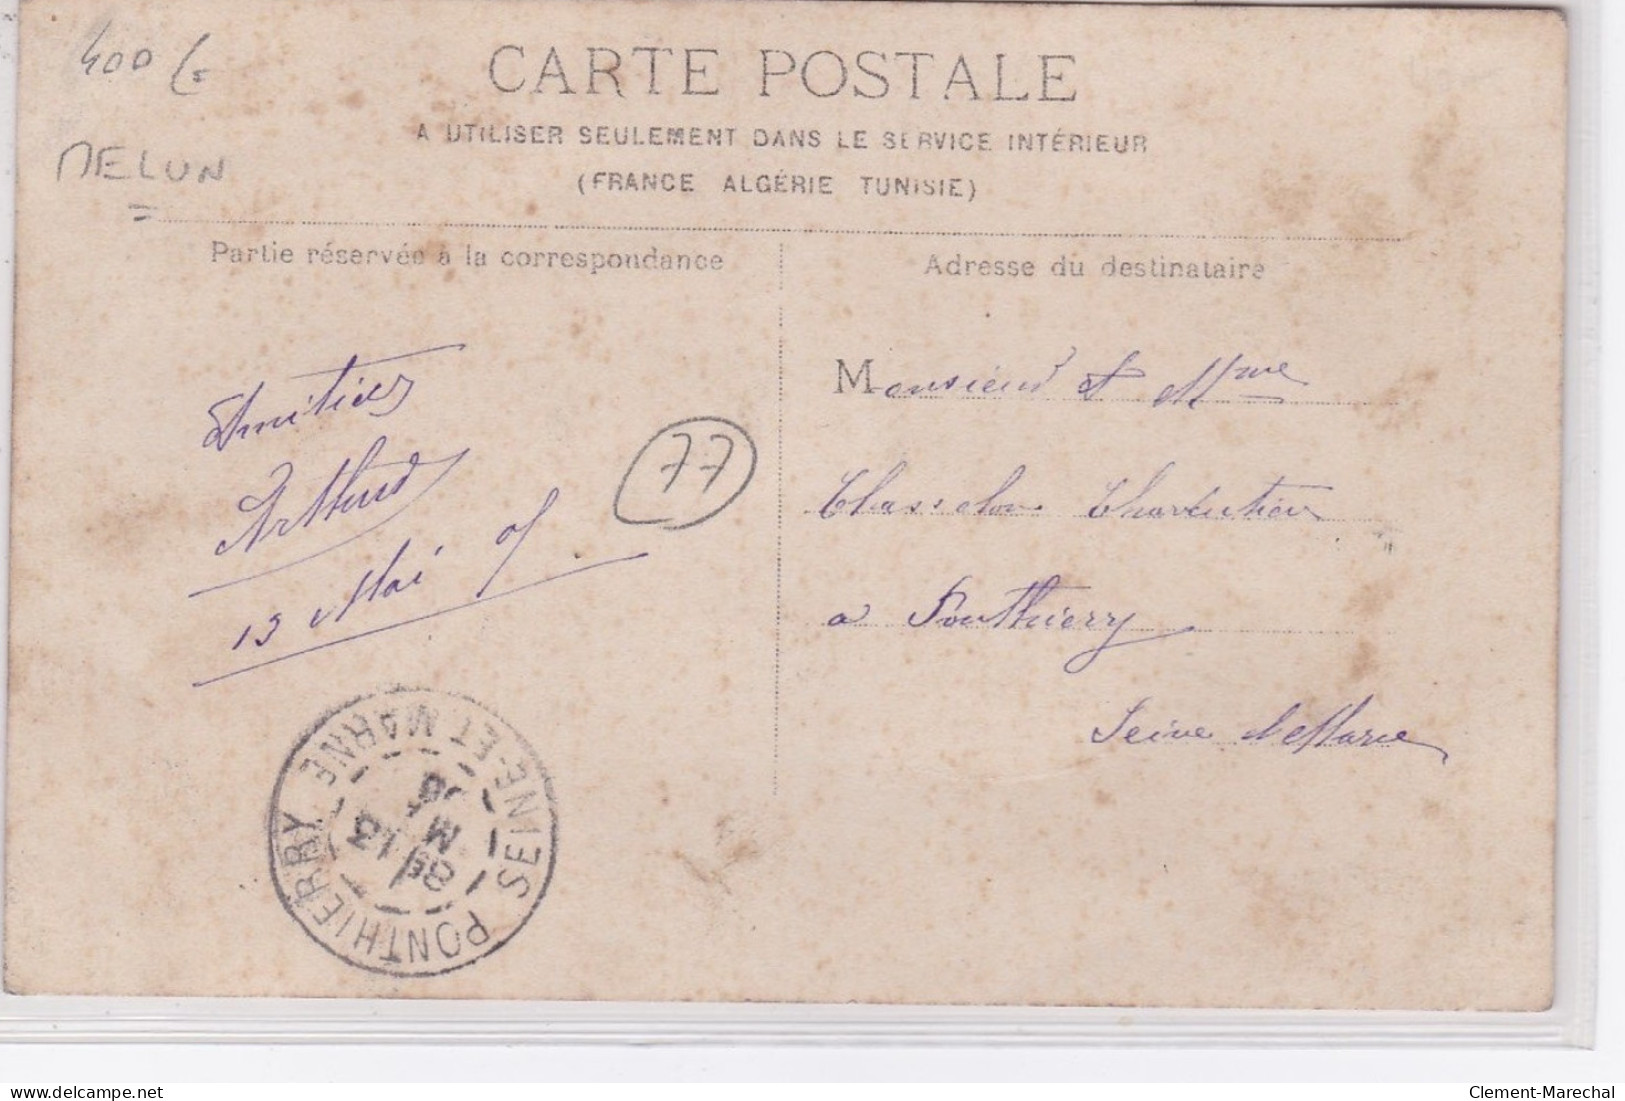 400 F
MELUN
CARTE POSTALE
A UTILISER SEULEMENT DANS LE SERVICE INTÉRIEUR
(FRANCE ALGÉRIE TUNISIE)
Partie réservée à la correspondance
Amitiés
Arthur
13 Mai 07
77
PONTHIERRY SEINE-ET-MARNE
8E 13
M
Adresse du destinataire
Monsieur et Mme
Chasselon Charcutier
a Ponthierry
Seine et Marne
delcampe.net
Clement-Marechal